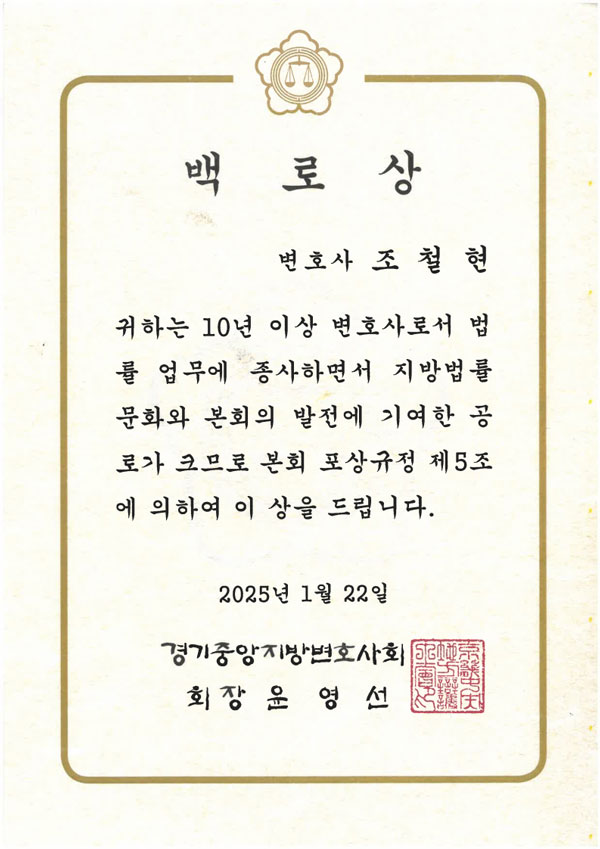 백 로 상
변호사 조 철 현
귀하는 10년 이상 변호사로서 법
률 업무에 종사하면서 지방법률
문화와 본회의 발전에 기여한 공
로가 크므로 본회 포상규정 제5조
에 의하여 이 상을 드립니다.
2025년 1월 22일
경기중앙지방변호사회
회 장 윤 영 선